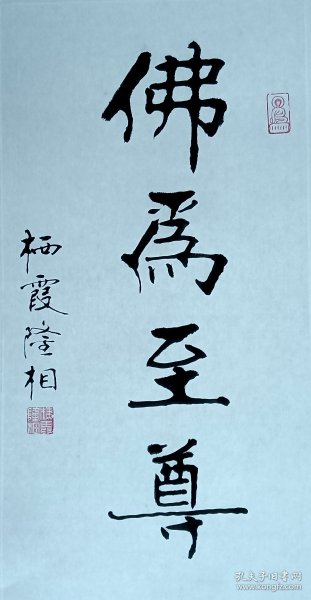 佛為至尊
栖霞隆相
孔夫子旧书网
www.kongfz.com